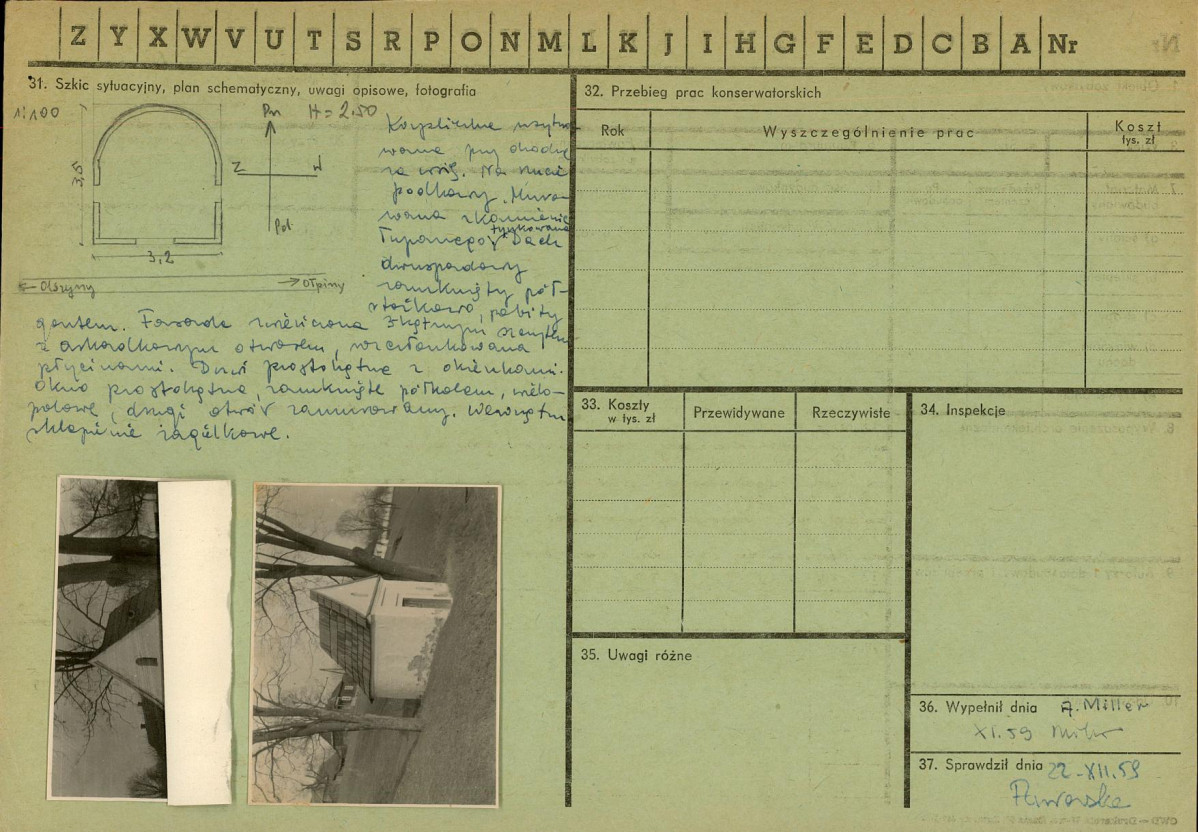 Z Y X W V U T S R P O N M L K J I H G F E D C B A Nr
31. Szkic sytuacyjny, plan schematyczny, uwagi opisowe, fotografia
1:100
Pn H = 2.50
3,5
Z W
Płd
3,2
← Olszyny → Ołpiny
Kapliczka usytu-
owana przy drodze
za wsią. Na rzucie
podkowy. Muro-
wana z kamienia
łupanego, tynkowana. Dach
dwuspadowy
zamknięty pół-
stożkowo, pobity
gontem. Fasada zwieńczona 3kątnym szczytem
z arkadkowym otworem, rozczłonkowana
płycinami. Drzwi prostokątne z okienkami.
Okno prostokątne, zamknięte półkolem, wielo-
polowe, drugi otwór zamurowany. Wewnątrz
sklepienie żagielkowe.
32. Przebieg prac konserwatorskich
Rok Wyszczególnienie prac Koszt
tys. zł
33. Koszty
w tys. zł Przewidywane Rzeczywiste
34. Inspekcje
35. Uwagi różne
36. Wypełnił dnia A. Miller
XI. 59
37. Sprawdził dnia 22-XII.59